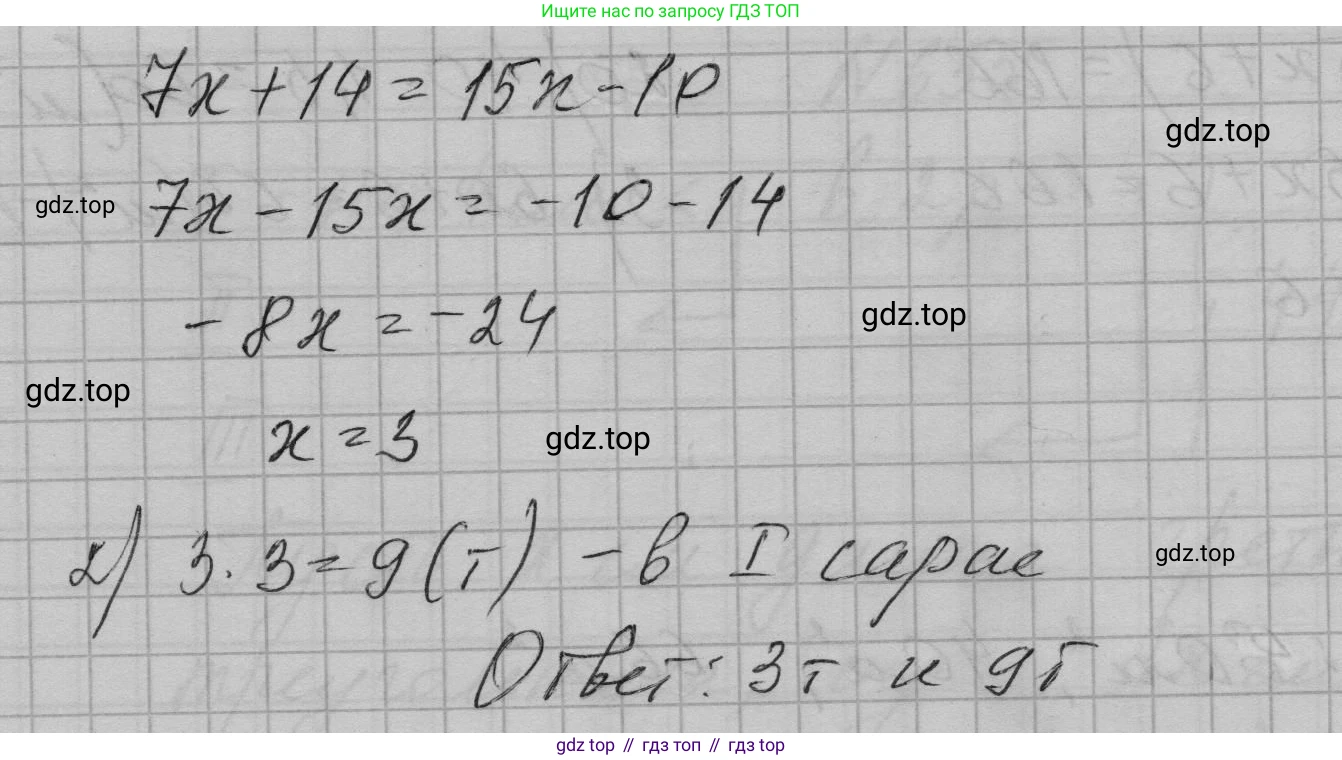 Ищите нас по запросу ГДЗ ТОП
7x + 14 = 15x - 10
gdz.top
gdz.top
7x - 15x = -10 - 14
- 8x = -24
gdz.top
gdz.top
x = 3
gdz.top
2) 3 · 3 = 9 (т) - в I сарае
gdz.top
Ответ: 3т и 9т
gdz top // гдз топ // gdz top